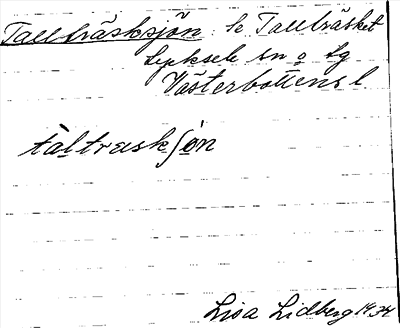 Tallträsksjön se Tallträsket
Lycksele sn o lg
Västerbottens l.
tàltrask∫ön
Lisa Lidberg 1934